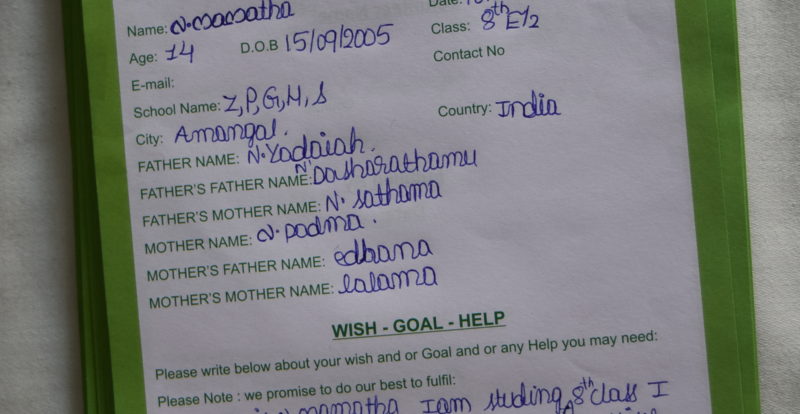 Name: N. mamatha Date:
Age: 14 D.O.B 15/09/2005 Class: 8th E1/2
E-mail: Contact No
School Name: Z,P,G,H,S
City: Amangal. Country: India
FATHER NAME: N. Yadaiah.
FATHER'S FATHER NAME: N. Dasharathamu
FATHER'S MOTHER NAME: N. sathama
MOTHER NAME: N. padma.
MOTHER'S FATHER NAME: edhana
MOTHER'S MOTHER NAME: lalama
WISH - GOAL - HELP
Please write below about your wish and or Goal and or any Help you may need:
Please Note : we promise to do our best to fulfil:
mamatha Iam studing 8th class I